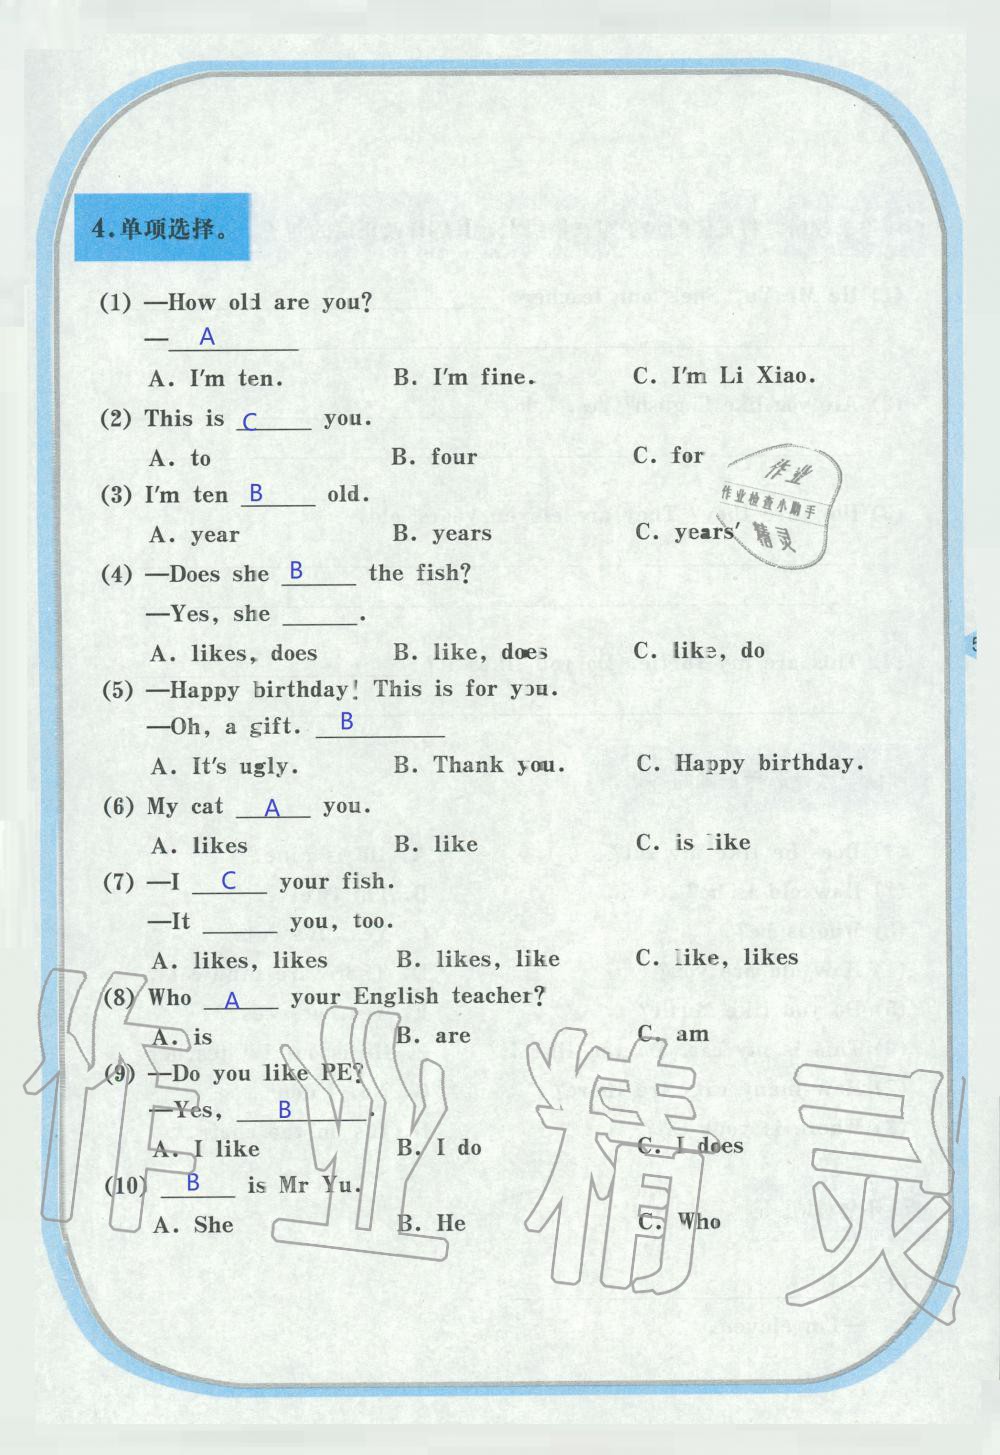 4.单项选择。
(1) —How old are you?
— A
A. I'm ten. B. I'm fine. C. I'm Li Xiao.
(2) This is C you.
A. to B. four C. for
(3) I'm ten B old.
A. year B. years C. years'
作业
作业检查小助手
精灵
(4) —Does she B the fish?
—Yes, she ______.
A. likes, does B. like, does C. like, do
(5) —Happy birthday! This is for you.
—Oh, a gift. B
A. It's ugly. B. Thank you. C. Happy birthday.
(6) My cat A you.
A. likes B. like C. is like
(7) —I C your fish.
—It ______ you, too.
A. likes, likes B. likes, like C. like, likes
(8) Who A your English teacher?
A. is B. are C. am
(9) —Do you like PE?
—Yes, B.
A. I like B. I do C. I does
(10) B is Mr Yu.
A. She B. He C. Who
作业精灵